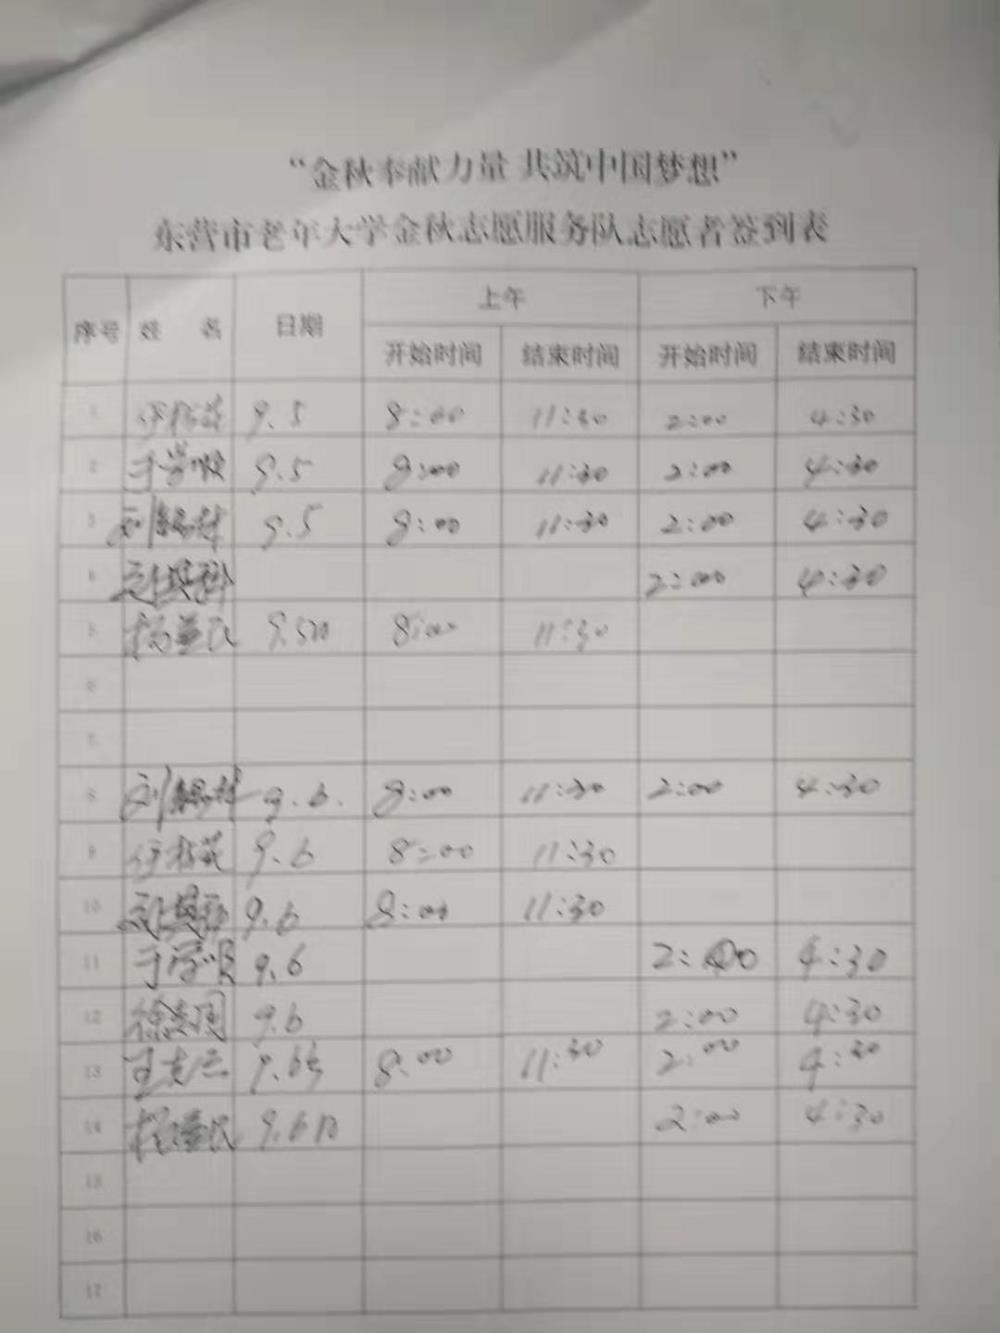 “金秋奉献力量 共筑中国梦想”
东营市老年大学金秋志愿服务队志愿者签到表
序号 姓 名 日期 上午 下午
开始时间 结束时间 开始时间 结束时间
1 9.5 8:00 11:30 2:00 4:30
2 于学顺 9.5 8:00 11:30 2:00 4:30
3 刘锡村 9.5 8:00 11:30 2:00 4:30
4 2:00 4:30
5 杨益民 9.5日 8:00 11:30
6
7
8 刘锡村 9.6. 8:00 11:30 2:00 4:30
9 9.6 8:00 11:30
10 9.6 8:00 11:30
11 于学顺 9.6 2:00 4:30
12 9.6 2:00 4:30
13 9.6号 8:00 11:30 2:00 4:30
14 杨益民 9.6日 2:00 4:30
15
16
17